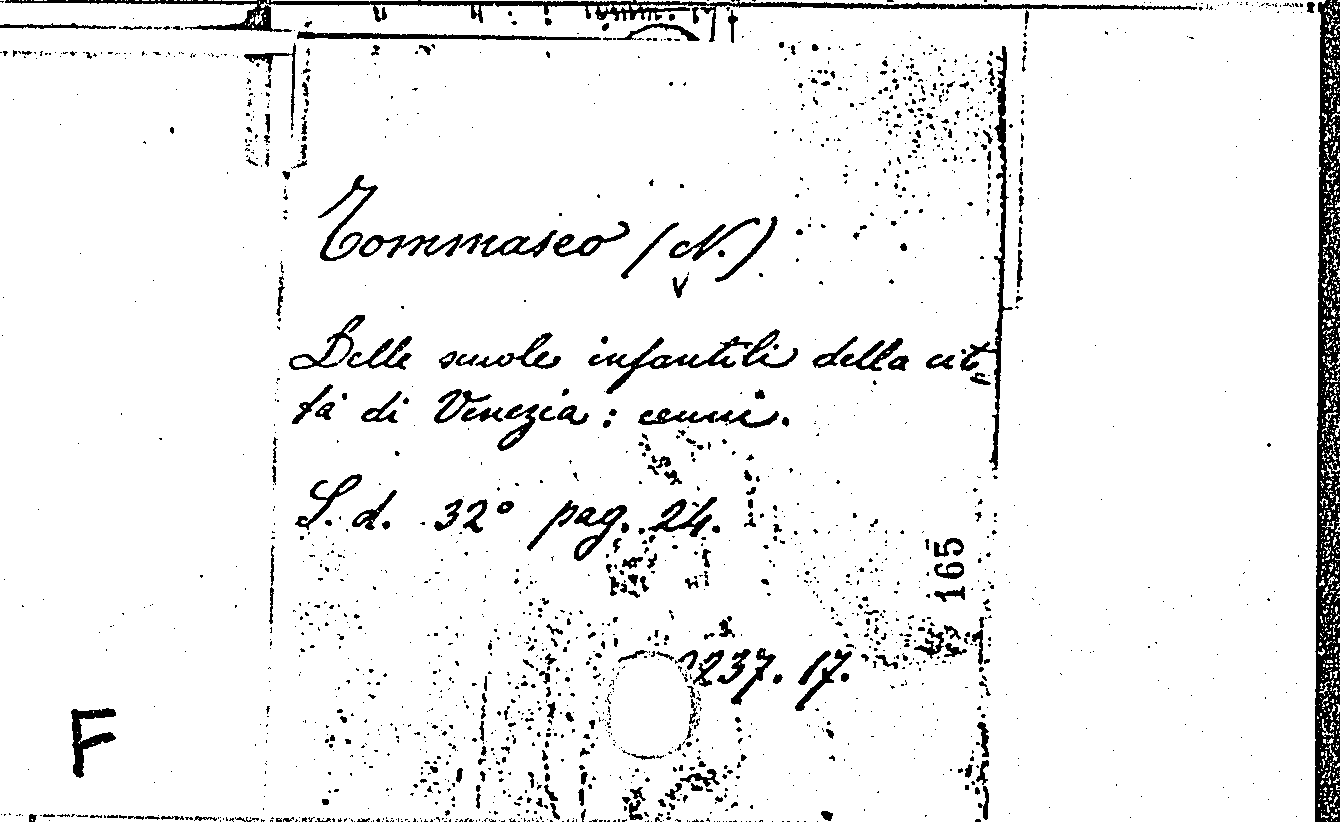 Tommaseo (N.)
Delle scuole infantili della cit-
tà di Venezia: cenni.
S. d. 32° pag. 24.
165
2237. 17.
F